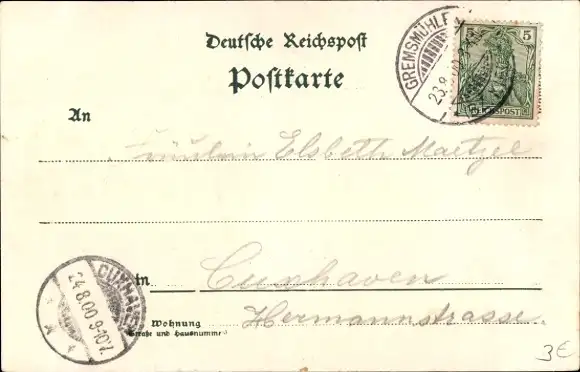 Deutsche Reichspost
Postkarte
GREMSMÜHLEN
23.8.
5
REICHSPOST
An
Fräulein Elsbeth Maetzel
in Cuxhaven
Hermannstrasse
Wohnung
(Straße und Hausnummer)
CUXHAVEN
24.8.00.9-10V.
3€